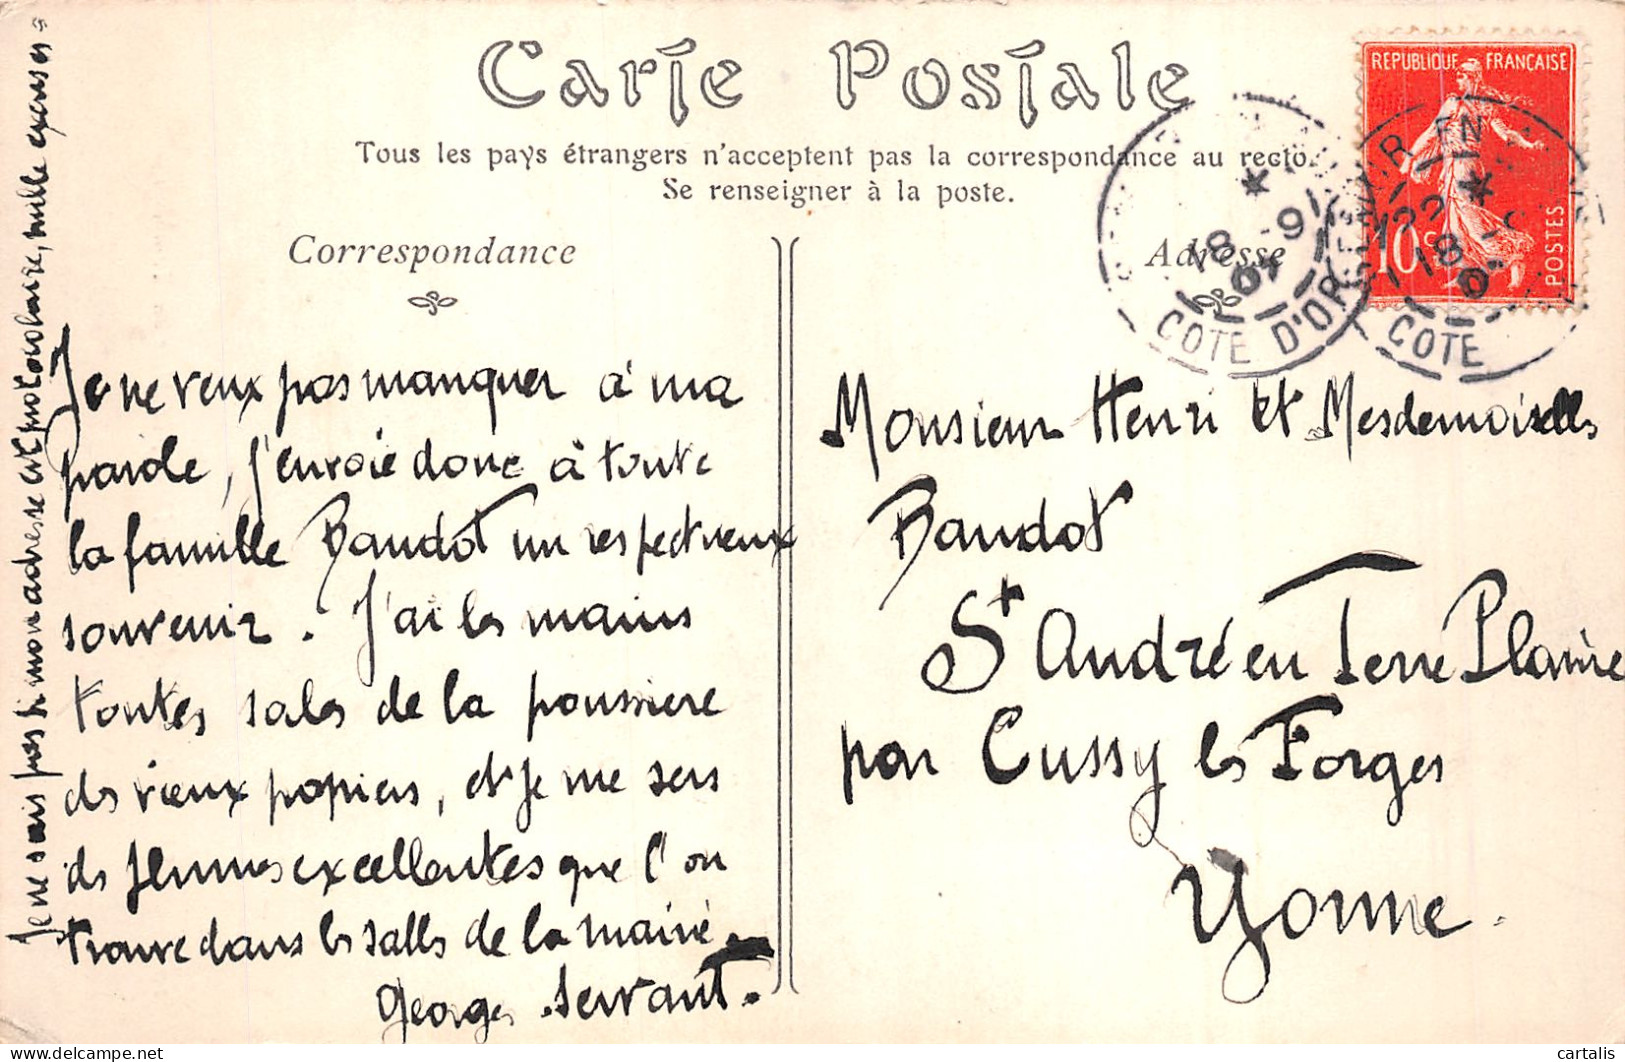 Carte Postale
Tous les pays étrangers n'acceptent pas la correspondance au recto.
Se renseigner à la poste.
Correspondance
Adresse
RÉPUBLIQUE FRANÇAISE
10c
POSTES
SEMUR EN
18 -9
COTE D'OR
18
COTE
Je ne veux pas manquer à ma
parole, j'envoie donc à toute
la famille Baudot un respectueux
souvenir. J'ai les mains
toutes sales de la poussière
des vieux papiers, et je me sers
des plumes excellentes que l'on
trouve dans les salles de la mairie.
Georges Servant.
Je ne sais pas si mon adresse est protocolaire, mille excuses =
Monsieur Henri et Mesdemoiselles
Baudot
St André en Terre Plaine
par Cussy les Forges
Yonne.
cartalis